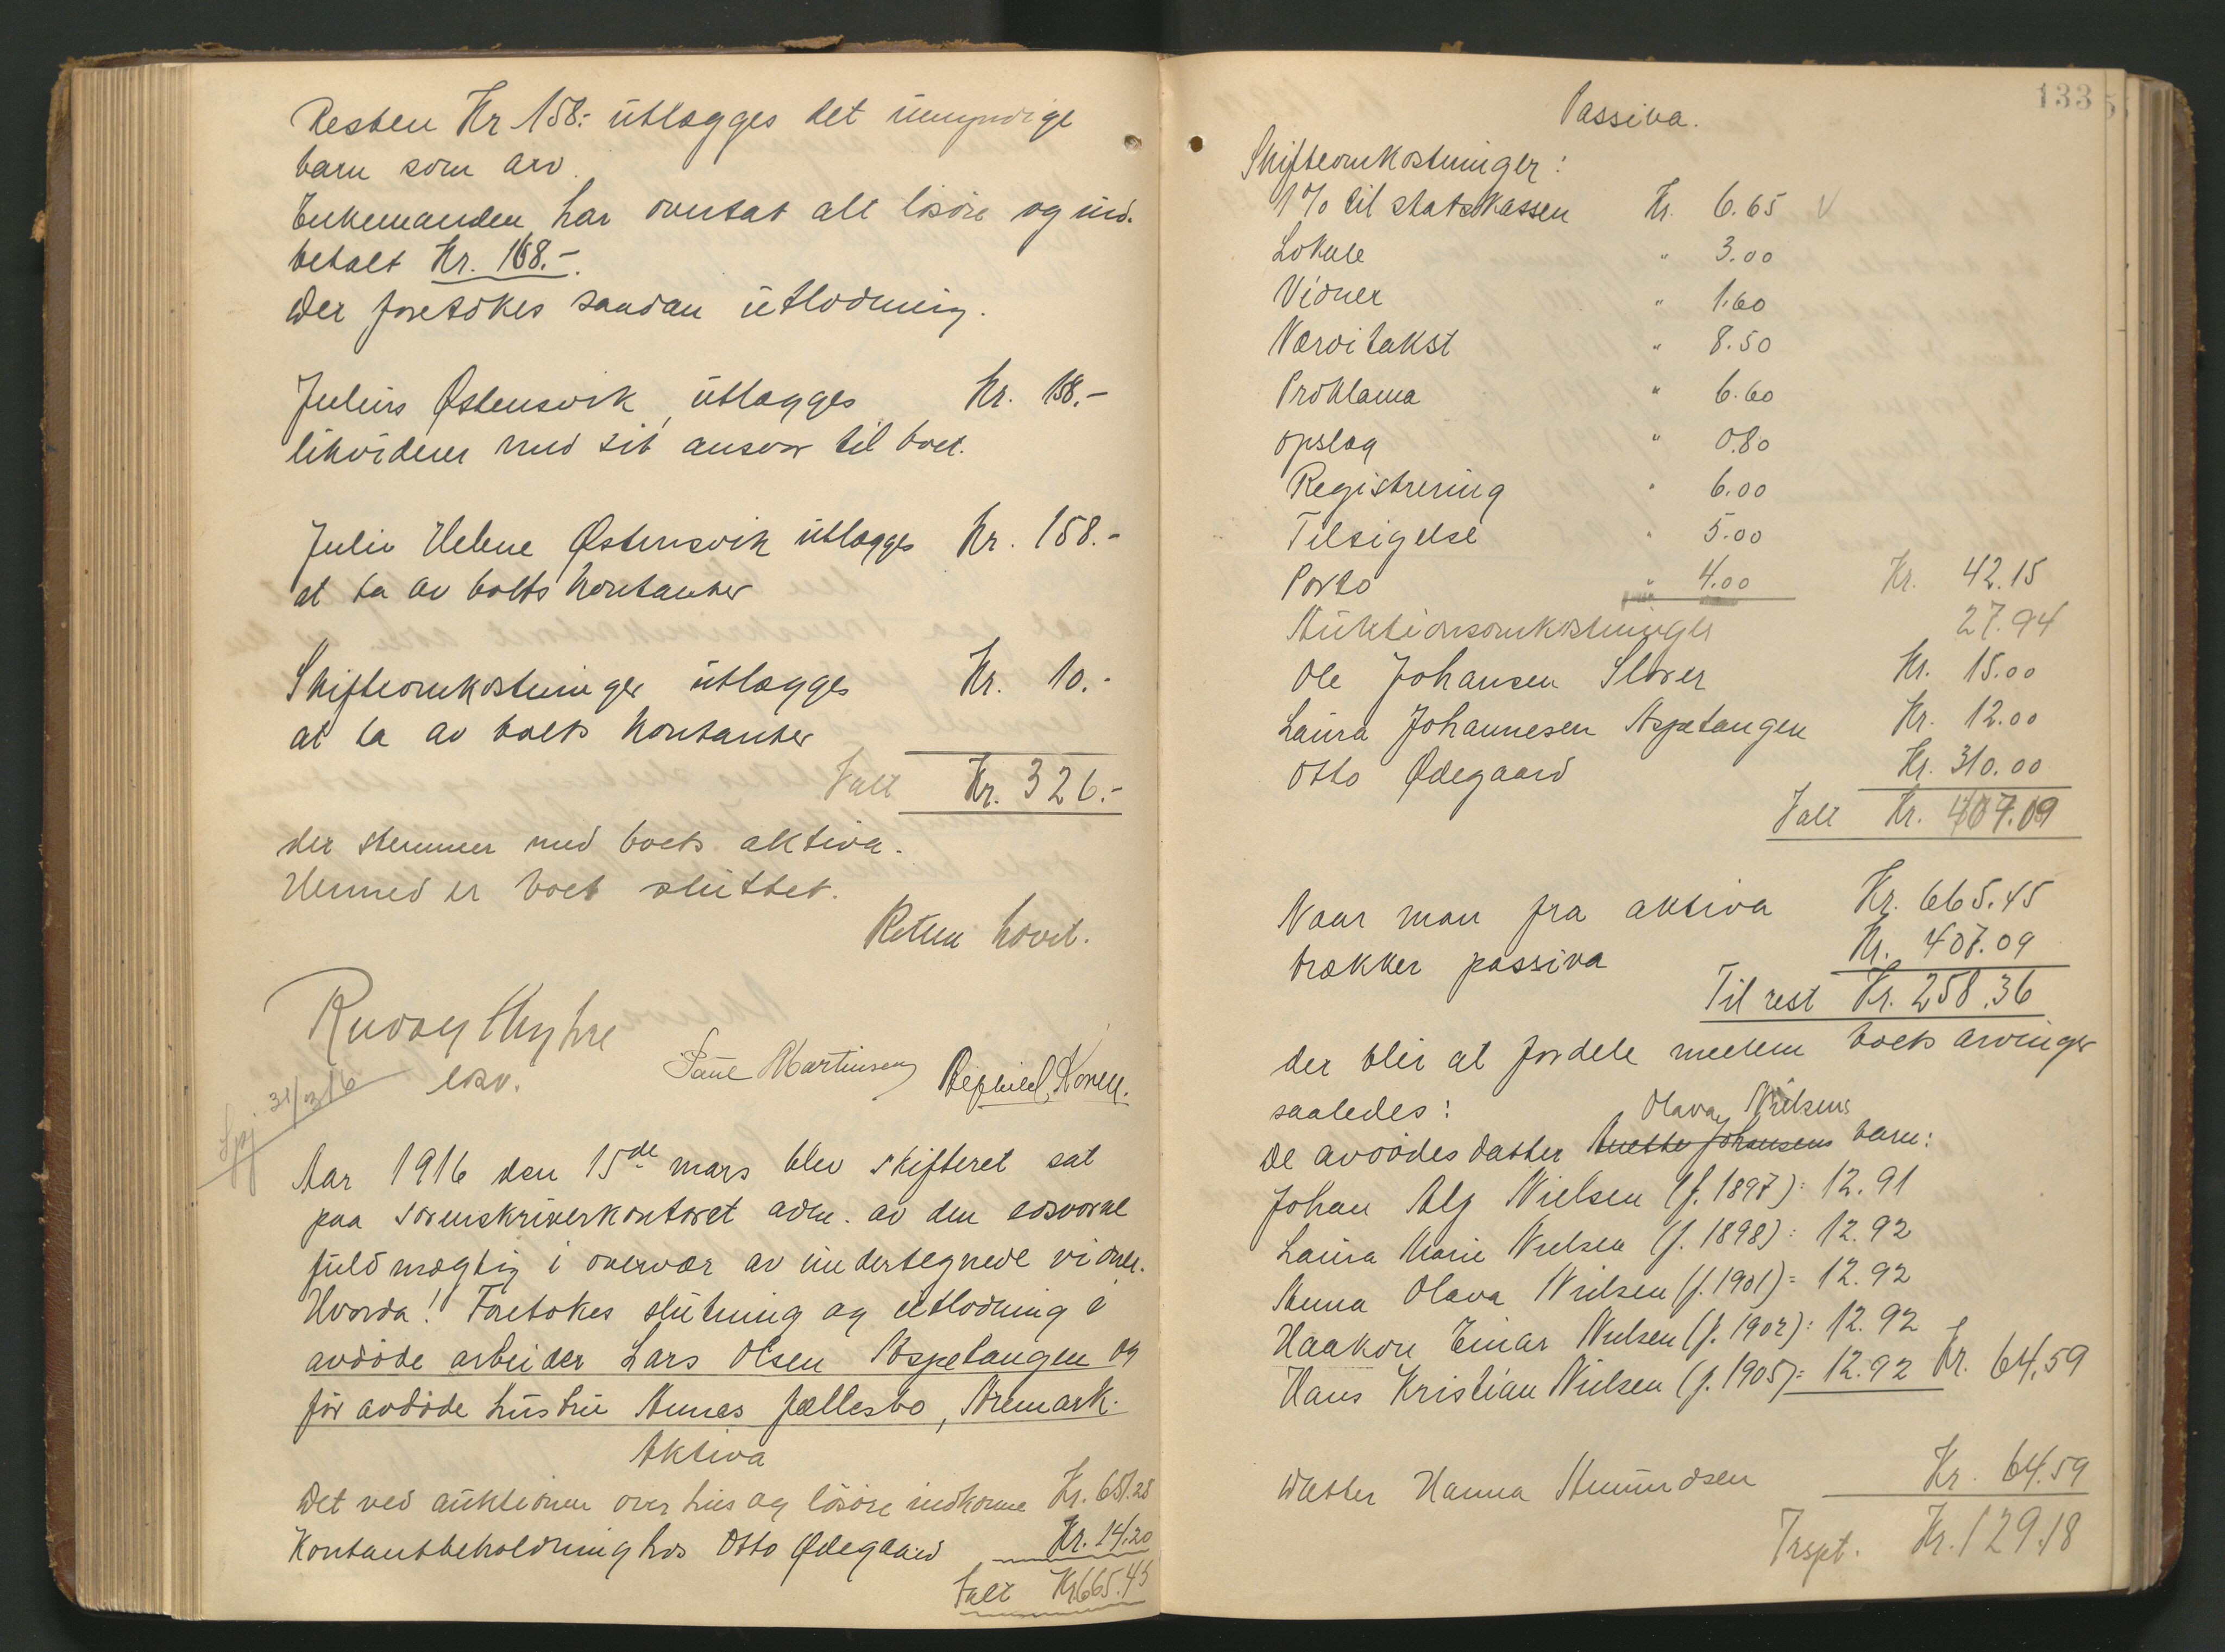 Resten Kr 158.- utlægges det umyndige
barn som arv.
Enkemanden har overtat alt løsøre og ind-
betalt Kr. 168.-.
Der foretokes saadan utlodning.
Julius Østensvik utlægges Kr. 158.-
likviderer med sit ansvar til boet.
Julie Helene Østensvik utlægges Kr. 158.-
at ta av boets kontanter
Skifteomkostninger utlægges Kr. 10.-
at ta av boets kontanter
Ialt Kr. 326.-
der stemmer med boets aktiva.
Hermed er boet sluttet.
Retten hævet.
eksv.
Paul Martinsen
Spj 31/3 16
Aar 1916 den 15de mars blev skifteret sat
paa sorenskriverkontoret adm. av den edsvorne
fuldmægtig i overvær av undertegnede vidner.
Hvorda! Foretokes slutning og utlodning i
avdøde arbeider Lars Olsen Aspetangen og
før avdøde hustru Annes fællesbo, Aremark.
Aktiva
Det ved auktionen over hus og løsøre indkomne Kr. 651.25
Kontantbeholdning hos Otto Ødegaard Kr. 14.20
Ialt Kr 665.45
133
Passiva.
Skifteomkostninger:
1% til statskassen Kr. 6.65 V
Lokale " 3.00
Vidner " 1.60
Værditakst " 8.50
Proklama " 6.60
opslag " 0.80
Registrering " 6.00
Tilsigelse " 5.00
Porto " 4.00 Kr. 42.15
Auktionsomkostninger 27.94
Ole Johansen Slorer Kr. 15.00
Laura Johannesen Aspetangen Kr. 12.00
Otto Ødegaard Kr. 310.00
Ialt Kr. 407.09
Naar man fra aktiva Kr. 665.45
trækker passiva Kr. 407.09
Til rest Kr. 258.36
der blir at fordele mellem boets arvinger
saaledes:
Olava Nielsens
De avdødes datter Anette Johansens barn:
Johan Alf Nielsen (f. 1897): 12.91
Laura Marie Nielsen (f. 1898): 12.92
Anna Olava Nielsen (f. 1901) = 12.92
Haakon Einar Nielsen (f. 1902): 12.92
Hans Kristian Nielsen (f. 1905) = 12.92 Kr. 64.59
Datter Hanna Amundsen Kr. 64.59
Trspt. Kr. 129.18